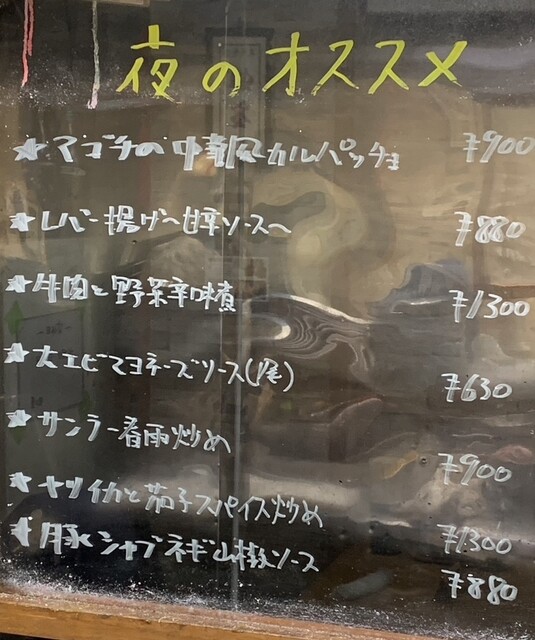 夜のオススメ
★マゴチの中華風カルパッチョ ¥900
★レバー揚げ〜甘辛ソース〜 ¥880
★牛肉と野菜辛味煮 ¥1300
★大エビマヨネーズソース(1尾) ¥630
★サンラー春雨炒め ¥900
★ヤリイカと茄子スパイス炒め ¥1300
★豚シャブネギ山椒ソース ¥880